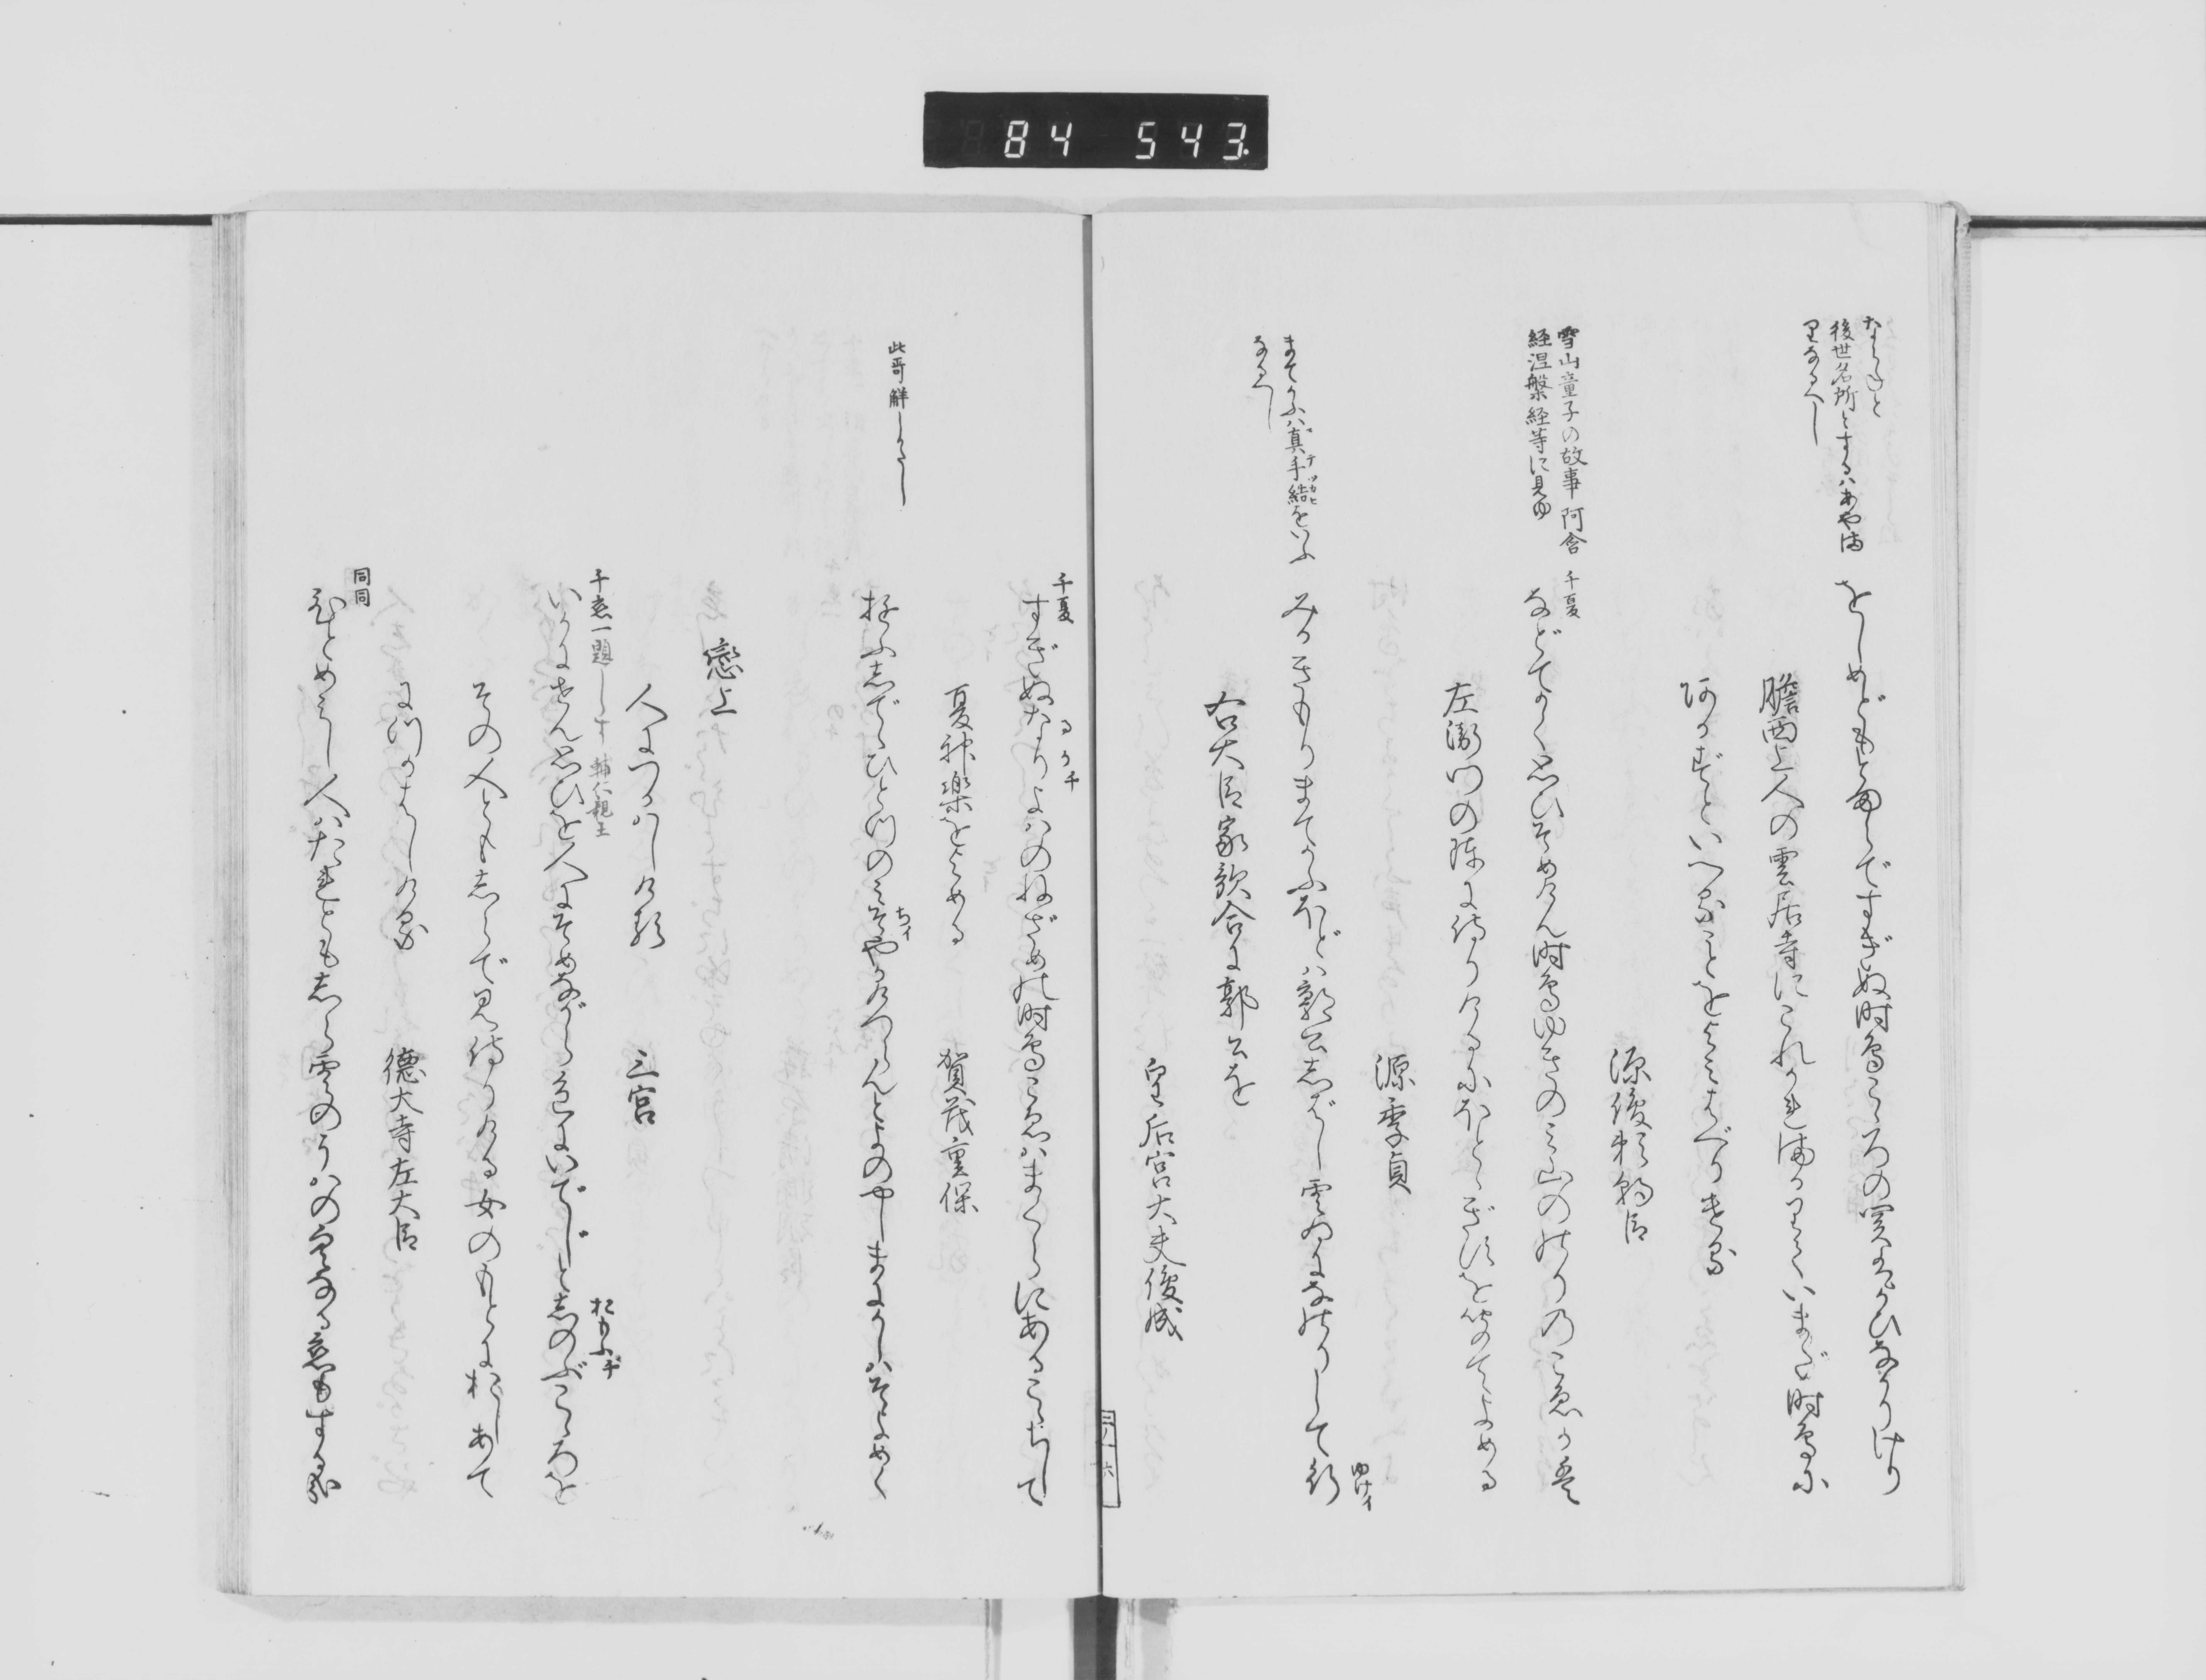 ならしと
後世名所とするハあやま
りなるへし
をしめどもとまらですぎぬ時鳥こゝろの関ぞかひなかりける
瞻西上人の雲居寺にこれかれまかりていまだ時鳥に
あかずといへることをよみはべりける
源俊頼朝臣
雪山童子の故事阿含
経涅槃経等に見ゆ
千夏
などてかく思ひそめけん時鳥ゆきのみ山ののりのこゑかは
左衛門の陣に侍りけるにほとゝぎすを聞てよめる
源季貞
まてかふハ真手結をいふ
マテツカヒ
なるへし
みかきもりまてかふほどハ郭公しばし雲ゐになのりして行
ゆけイ
右大臣家歌合に郭公を
皇后宮大夫俊成
三ノ十六
千夏
るか千
すぎぬなりよハのねざめの時鳥こゑハまくらにあるこゝちして
夏神楽をよめる 賀茂重保
此哥解しかたし
ちイ
ひと川のみそやかけつらんとよのやしま
戀上
人につかハしける 三宮
千恋一題しらす 輔仁親王
いかにせん思ひを人にそめながら色にいでじとしのぶこゝろを
おもふ千
その人ともしらで見侍りける女のもとにおしあて
につかはしける 德大寺左大臣
同同
人ハたれともしら雲のうハの空なる恋もする哉
84 543.